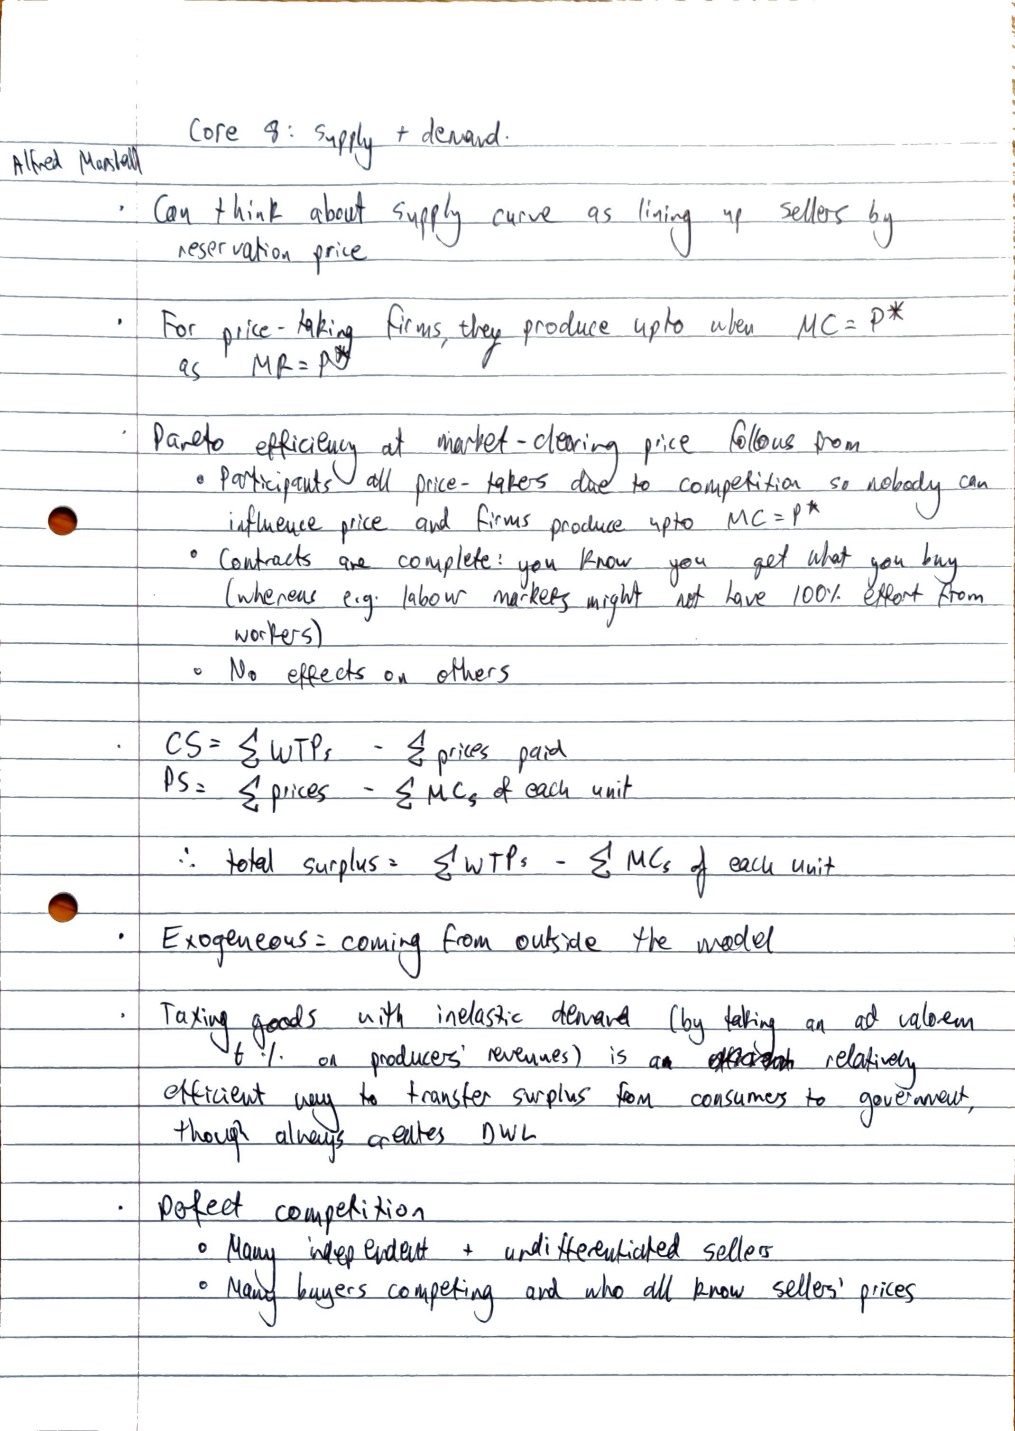 Core 8: Supply + demand.
Alfred Marshall
· Can think about supply curve as lining up sellers by
reservation price
· For price-taking firms, they produce upto when MC = P*
as MR = P*
· Pareto efficiency at market-clearing price follows from
∘ Participants all price-takers due to competition so nobody can
influence price and firms produce upto MC = P*
∘ Contracts are complete: you know you get what you buy
(whereas e.g. labour markets might not have 100% effort from
workers)
∘ No effects on others
· CS = Σ WTPs - Σ prices paid
PS = Σ prices - Σ MCs of each unit
∴ total surplus = Σ WTPs - Σ MCs of each unit
· Exogeneous = coming from outside the model
· Taxing goods with inelastic demand (by taking an ad valorem
t % on producers' revenues) is an relatively
efficient way to transfer surplus from consumers to government,
though always creates DWL
· Perfect competition
∘ Many independent + undifferentiated sellers
∘ Many buyers competing and who all know sellers' prices